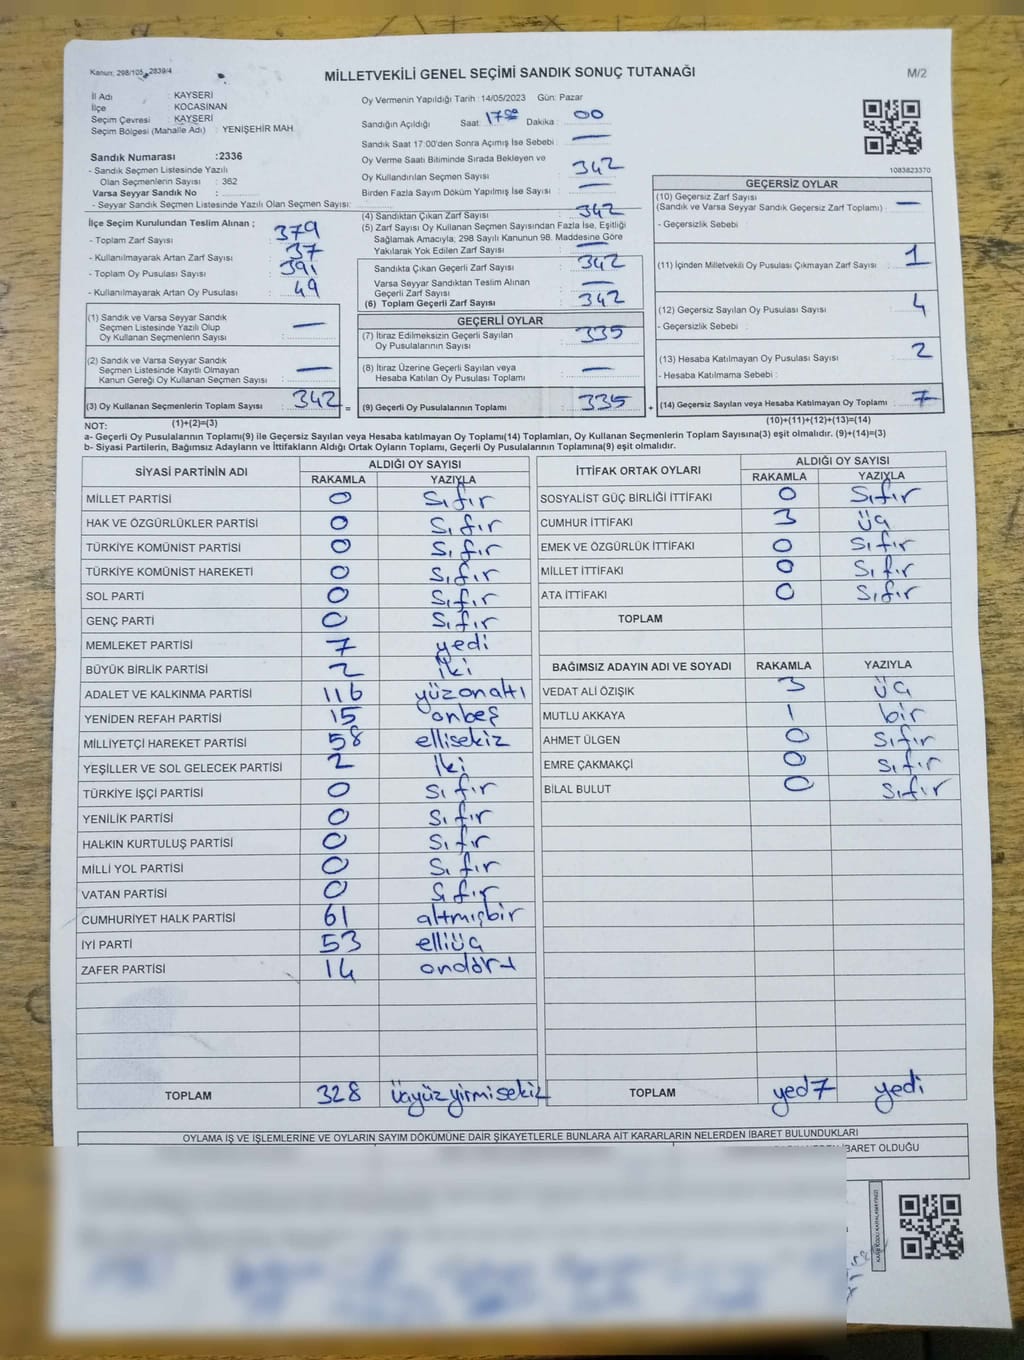 Kanun: 298/105, 2839/4
MİLLETVEKİLİ GENEL SEÇİMİ SANDIK SONUÇ TUTANAĞI
M/2
İl Adı : KAYSERİ
İlçe : KOCASİNAN
Seçim Çevresi : KAYSERİ
Seçim Bölgesi (Mahalle Adı) : YENİŞEHİR MAH.
Sandık Numarası :2336
- Sandık Seçmen Listesinde Yazılı
Olan Seçmenlerin Sayısı : 362
Varsa Seyyar Sandık No :
- Seyyar Sandık Seçmen Listesinde Yazılı Olan Seçmen Sayısı:
Oy Vermenin Yapıldığı Tarih :14/05/2023 Gün: Pazar
Sandığın Açıldığı Saat: 17 00 Dakika : 00
Sandık Saat 17:00'den Sonra Açımış İse Sebebi : —
Oy Verme Saati Bitiminde Sırada Bekleyen ve
Oy Kullandırılan Seçmen Sayısı : 342
Birden Fazla Sayım Döküm Yapılmış İse Sayısı : —
1083823370
İlçe Seçim Kurulundan Teslim Alınan ;
- Toplam Zarf Sayısı : 379
- Kullanılmayarak Artan Zarf Sayısı : 37
- Toplam Oy Pusulası Sayısı : 391
- Kullanılmayarak Artan Oy Pusulası : 49
(1) Sandık ve Varsa Seyyar Sandık
Seçmen Listesinde Yazılı Olup
Oy Kullanan Seçmenlerin Sayısı : —
(2) Sandık ve Varsa Seyyar Sandık
Seçmen Listesinde Kayıtlı Olmayan
Kanun Gereği Oy Kullanan Seçmen Sayısı : —
(3) Oy Kullanan Seçmenlerin Toplam Sayısı : 342 =
(1)+(2)=(3)
(4) Sandıktan Çıkan Zarf Sayısı : 342
(5) Zarf Sayısı Oy Kullanan Seçmen Sayısından Fazla İse, Eşitliği
Sağlamak Amacıyla, 298 Sayılı Kanunun 98. Maddesine Göre
Yakılarak Yok Edilen Zarf Sayısı : —
Sandıkta Çıkan Geçerli Zarf Sayısı : 342
Varsa Seyyar Sandıktan Teslim Alınan
Geçerli Zarf Sayısı : —
(6) Toplam Geçerli Zarf Sayısı : 342
GEÇERLİ OYLAR
(7) İtiraz Edilmeksizin Geçerli Sayılan
Oy Pusulalarının Sayısı : 335
(8) İtiraz Üzerine Geçerli Sayılan veya
Hesaba Katılan Oy Pusulası Toplamı : —
(9) Geçerli Oy Pusulalarının Toplamı : 335 +
GEÇERSİZ OYLAR
(10) Geçersiz Zarf Sayısı
(Sandık ve Varsa Seyyar Sandık Geçersiz Zarf Toplamı) : —
- Geçersizlik Sebebi :
(11) İçinden Milletvekili Oy Pusulası Çıkmayan Zarf Sayısı : 1
(12) Geçersiz Sayılan Oy Pusulası Sayısı : 4
- Geçersizlik Sebebi :
(13) Hesaba Katılmayan Oy Pusulası Sayısı : 2
- Hesaba Katılmama Sebebi :
(14) Geçersiz Sayılan veya Hesaba Katılmayan Oy Toplamı : 7
(10)+(11)+(12)+(13)=(14)
NOT:
a- Geçerli Oy Pusulalarının Toplamı(9) ile Geçersiz Sayılan veya Hesaba katılmayan Oy Toplamı(14) Toplamları, Oy Kullanan Seçmenlerin Toplam Sayısına(3) eşit olmalıdır. (9)+(14)=(3)
b- Siyasi Partilerin, Bağımsız Adayların ve İttifakların Aldığı Ortak Oyların Toplamı, Geçerli Oy Pusulalarının Toplamına(9) eşit olmalıdır.
SİYASİ PARTİNİN ADI ALDIĞI OY SAYISI
RAKAMLA YAZIYLA
MİLLET PARTİSİ 0 Sıfır
HAK VE ÖZGÜRLÜKLER PARTİSİ 0 Sıfır
TÜRKİYE KOMÜNİST PARTİSİ 0 Sıfır
TÜRKİYE KOMÜNİST HAREKETİ 0 Sıfır
SOL PARTİ 0 Sıfır
GENÇ PARTİ 0 Sıfır
MEMLEKET PARTİSİ 7 yedi
BÜYÜK BİRLİK PARTİSİ 2 iki
ADALET VE KALKINMA PARTİSİ 116 yüzonaltı
YENİDEN REFAH PARTİSİ 15 onbeş
MİLLİYETÇİ HAREKET PARTİSİ 58 ellisekiz
YEŞİLLER VE SOL GELECEK PARTİSİ 2 iki
TÜRKİYE İŞÇİ PARTİSİ 0 Sıfır
YENİLİK PARTİSİ 0 Sıfır
HALKIN KURTULUŞ PARTİSİ 0 Sıfır
MİLLİ YOL PARTİSİ 0 Sıfır
VATAN PARTİSİ 0 Sıfır
CUMHURİYET HALK PARTİSİ 61 altmışbir
İYİ PARTİ 53 elliüç
ZAFER PARTİSİ 14 ondört
TOPLAM 328 üçyüzyirmisekiz
İTTİFAK ORTAK OYLARI ALDIĞI OY SAYISI
RAKAMLA YAZIYLA
SOSYALİST GÜÇ BİRLİĞİ İTTİFAKI 0 Sıfır
CUMHUR İTTİFAKI 3 üç
EMEK VE ÖZGÜRLÜK İTTİFAKI 0 Sıfır
MİLLET İTTİFAKI 0 Sıfır
ATA İTTİFAKI 0 Sıfır
TOPLAM
BAĞIMSIZ ADAYIN ADI VE SOYADI RAKAMLA YAZIYLA
VEDAT ALİ ÖZIŞIK 3 üç
MUTLU AKKAYA 1 bir
AHMET ÜLGEN 0 Sıfır
EMRE ÇAKMAKÇİ 0 Sıfır
BİLAL BULUT 0 Sıfır
TOPLAM yed7 yedi
OYLAMA İŞ VE İŞLEMLERİNE VE OYLARIN SAYIM DÖKÜMÜNE DAİR ŞİKAYETLERLE BUNLARA AİT KARARLARIN NELERDEN İBARET BULUNDUKLARI
İBARET OLDUĞU